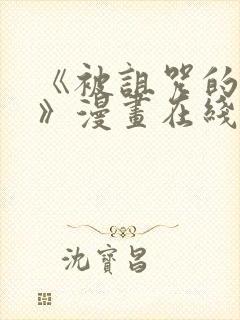 《被詛咒的
》漫畫在綫
沈寶昌